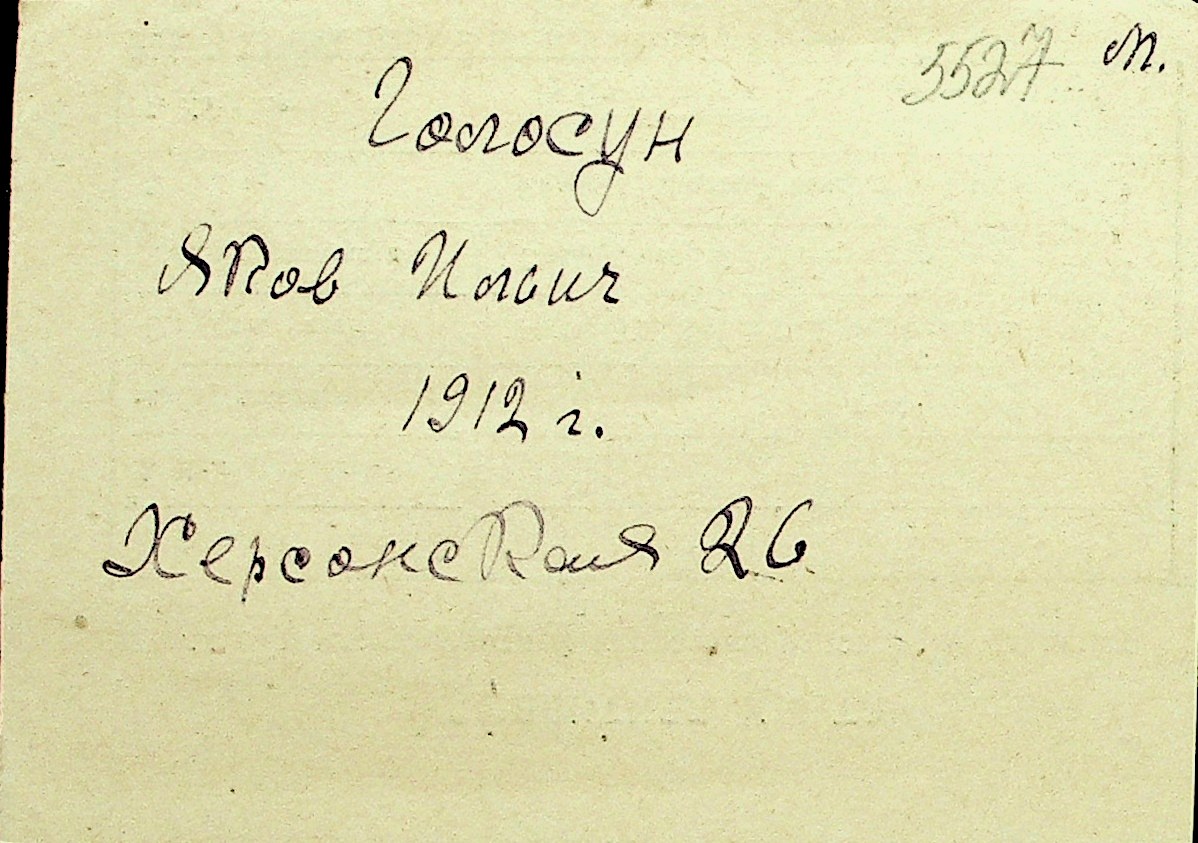 5527 м.
Голосун
Яков Ильич
1912 г.
Херсонская 26